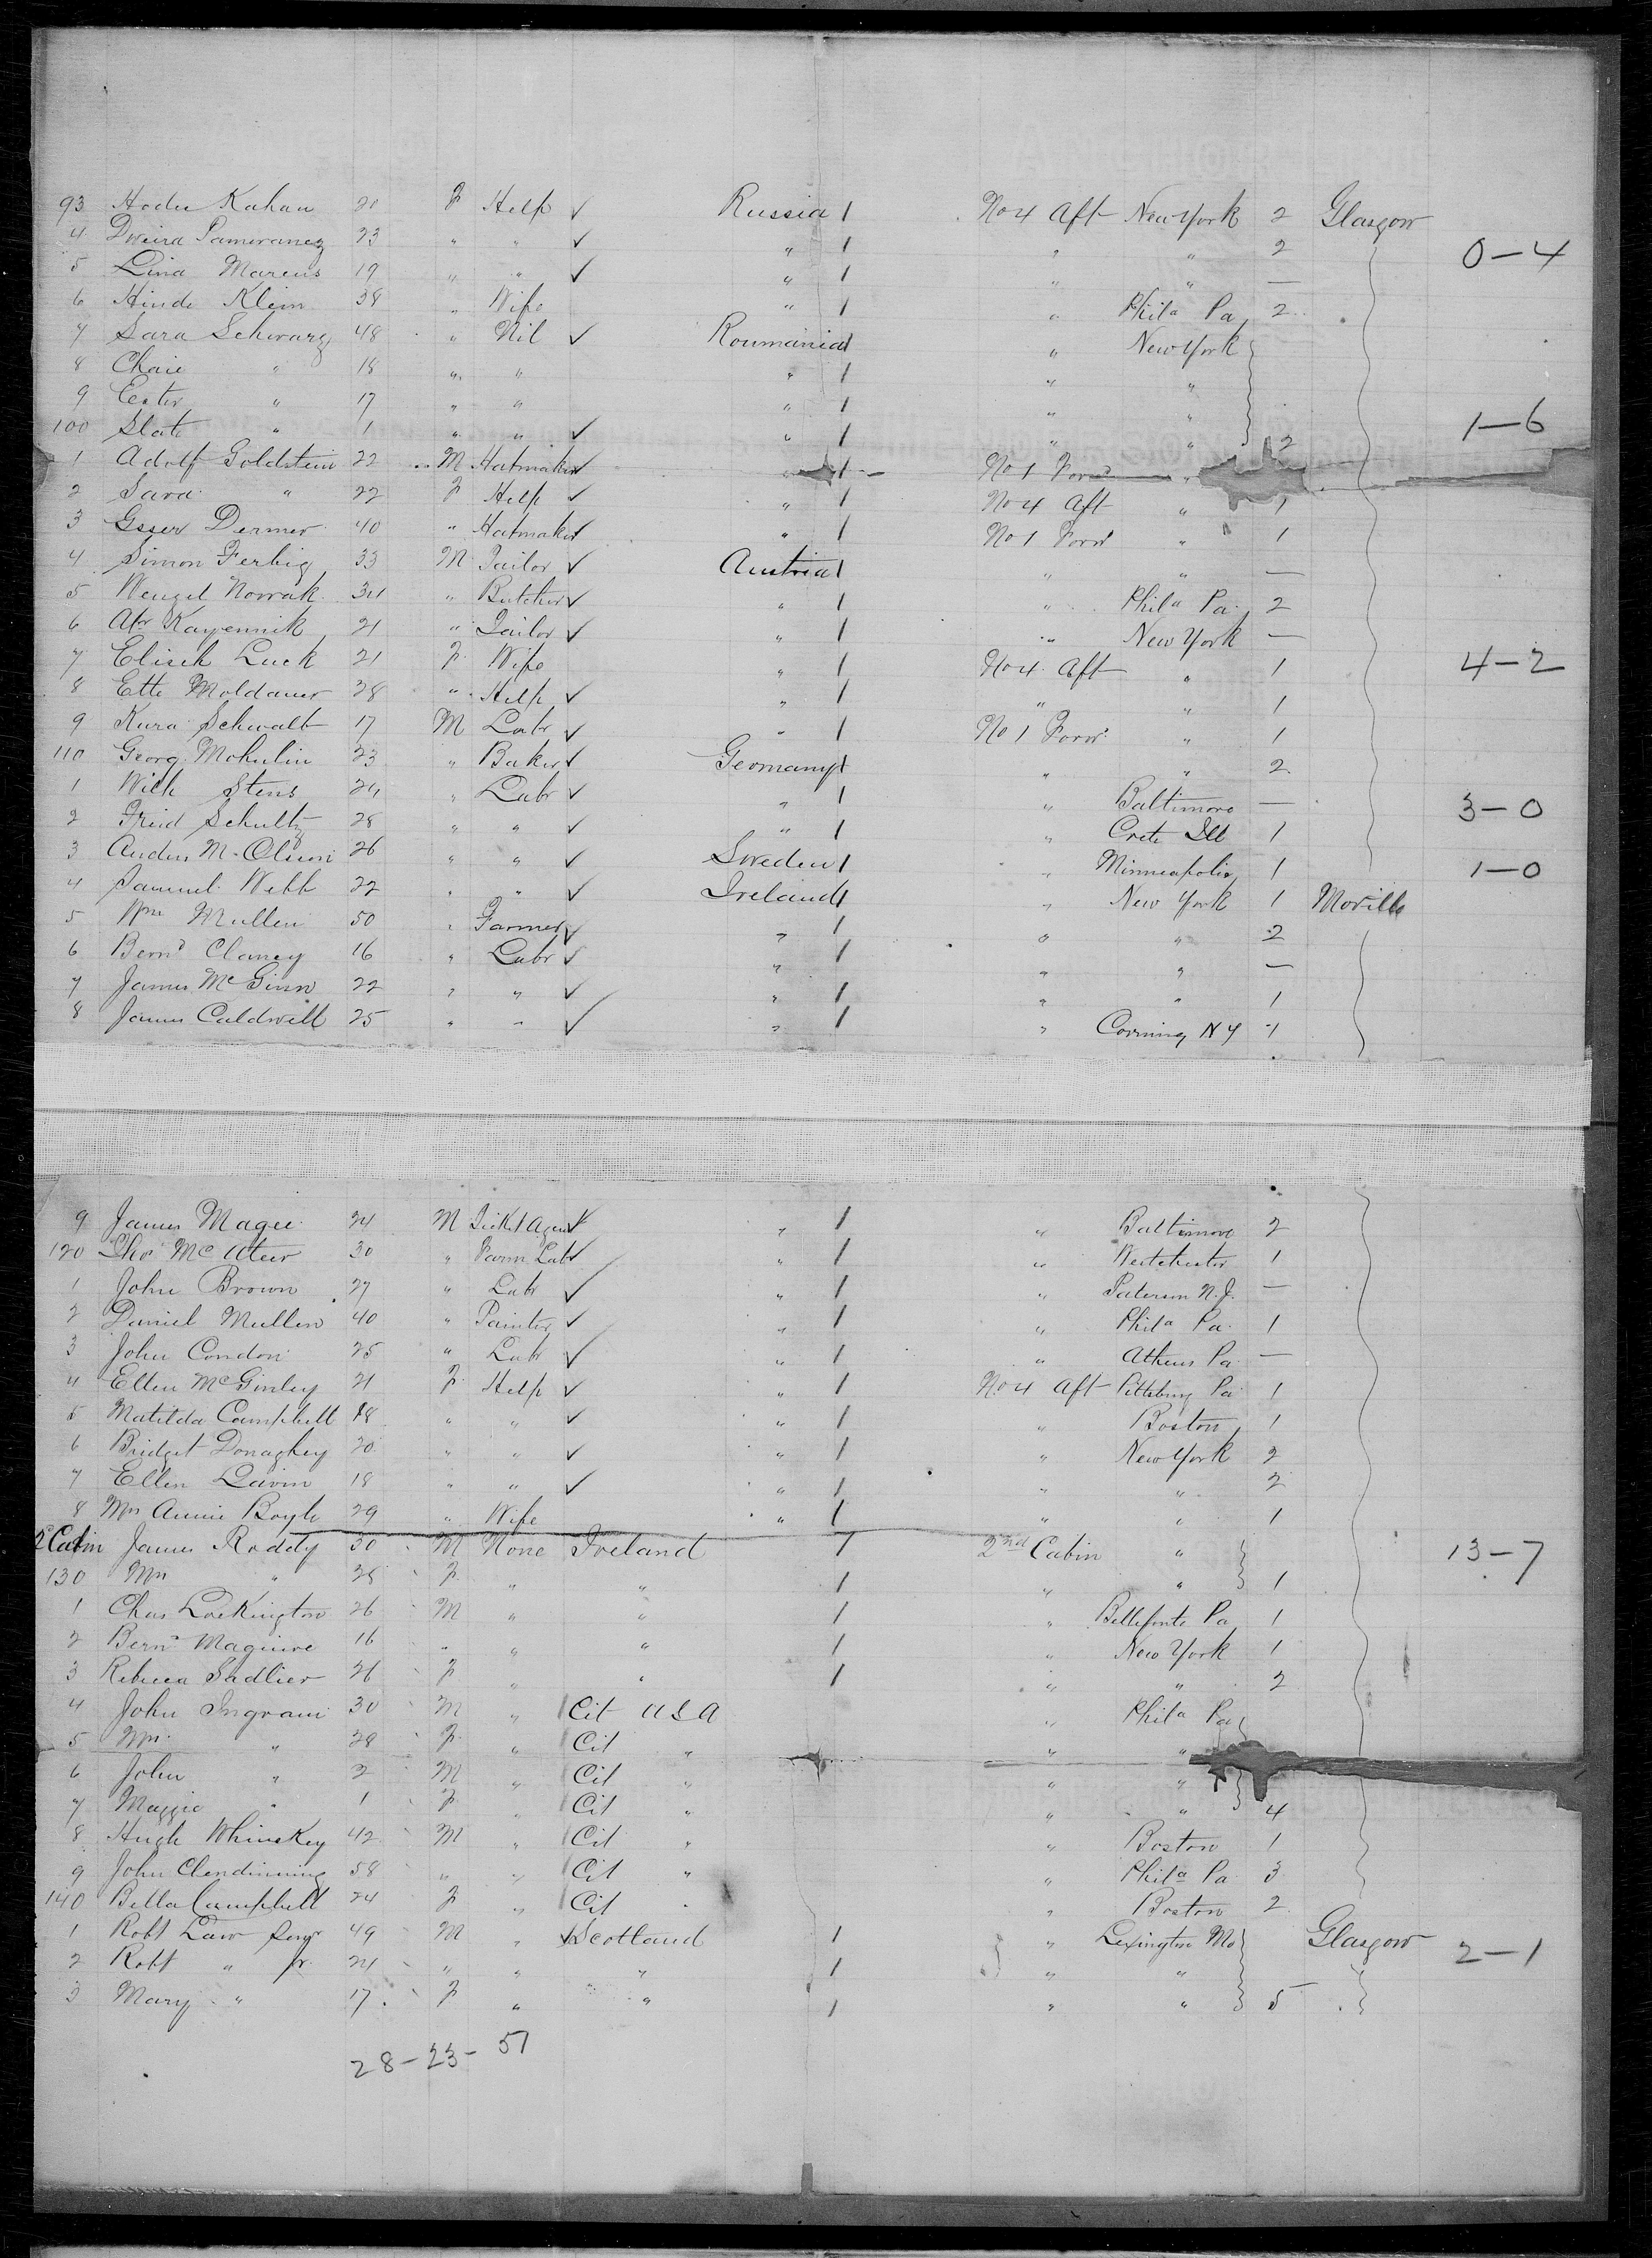 93 Hodu Kahan 20 F Help ✓ Russia 1 No 4 Aft New York 2 Glasgow
4 Dweira Pameranez 23 " " ✓ " 1 " " 2 0-4
5 Lina Marcus 19 " " ✓ " 1 " " —
6 Hinde Klein 38 " Wife " 1 " Phila Pa 2
7 Sara Schwarz 48 " Nil ✓ Roumania 1 " New York
8 Chaie " 18 " " " 1 " "
9 Ester " 17 " " " 1 " "
100 Slate " 1 " " ✓ " 1 " " 2 1-6
1 Adolf Goldstein 22 M Hatmaker ✓ " 1 — No 1 Forwd "
2 Sara " 22 F Help ✓ " 1 No 4 Aft " 1
3 Gsser Dermer 40 " Hatmaker ✓ " 1 No 1 Forwd " 1
4 Simon Ferbig 33 M Tailor ✓ Austria 1 " " —
5 Wenzel Nowak 34 " Butcher ✓ " 1 " Phila Pa 2
6 Abr Kayennik 21 " Tailor ✓ " 1 " New York —
7 Elisek Luck 21 F Wife " 1 No 4 Aft " 1 4-2
8 Ette Moldauer 28 " Help ✓ " 1 " " 1
9 Kura Schwalb 17 M Labr ✓ " 1 No 1 Forwd " 1
110 Georg Mohulin 23 " Baker ✓ Germany 1 " " 2
1 Wilh Stens 24 " Labr ✓ " 1 " Baltimore — 3-0
2 Fried Schultz 28 " " ✓ " 1 " Crete Ill 1
3 Anders M. Olsson 26 " " ✓ Sweden 1 " Minneapolis 1 1-0
4 Samuel Webb 22 " " ✓ Ireland 1 " New York 1 Moville
5 Wm Mullen 50 " Farmer ✓ " 1 " " 2
6 Bernd Clancy 16 " Labr ✓ " 1 " " —
7 James McGinn 22 " " ✓ " 1 " " 1
8 James Caldwell 25 " " ✓ " 1 " Corning N Y 1
9 James Magee 24 M Tickt Agent ✓ " 1 " Baltimore 2
120 Thos McAteer 30 " Farm Labr ✓ " 1 " Westchester 1
1 John Brown 27 " Labr ✓ " 1 " Paterson N.J. —
2 Daniel Mullen 40 " Painter ✓ " 1 " Phila Pa 1
3 John Condon 25 " Labr ✓ " 1 " Athens Pa —
4 Ellen McGinley 21 F Help ✓ " 1 No 4 Aft Pittsburg Pa 1
5 Matilda Campbell 18 " " ✓ " 1 " Boston 1
6 Bridget Donaghey 20 " " ✓ " 1 " New York 2
7 Ellen Lavin 18 " " ✓ " 1 " " 2
8 Mrs Annie Boyle 29 " Wife " 1 " " 1
2d Cabin James Roddy 30 M None Ireland 1 2nd Cabin " 13-7
130 Mrs " 28 F " " 1 " " 1
1 Chas Lockington 26 M " " 1 " Bellefonte Pa 1
2 Bernd Maguire 16 " " " 1 " New York 1
3 Rebecca Sadlier 26 F " " 1 " " 2
4 John Ingram 30 M " Cit U S A " Phila Pa
5 Mrs " 28 F " Cit " " "
6 John " 2 M " Cit " " "
7 Maggie " 1 F " Cit " " " 4
8 Hugh Whinskey 42 M " Cit " " Boston 1
9 John Clendinning 58 " " Cit " " Phila Pa 3
140 Bella Campbell 24 F " Cit " " Boston 2
1 Robt Law Senr 49 M " Scotland 1 " Lexington Mo Glasgow 2-1
2 Robt " Jr 24 " " " 1 " "
3 Mary " 17 F " " 1 " " 5
28-23-51